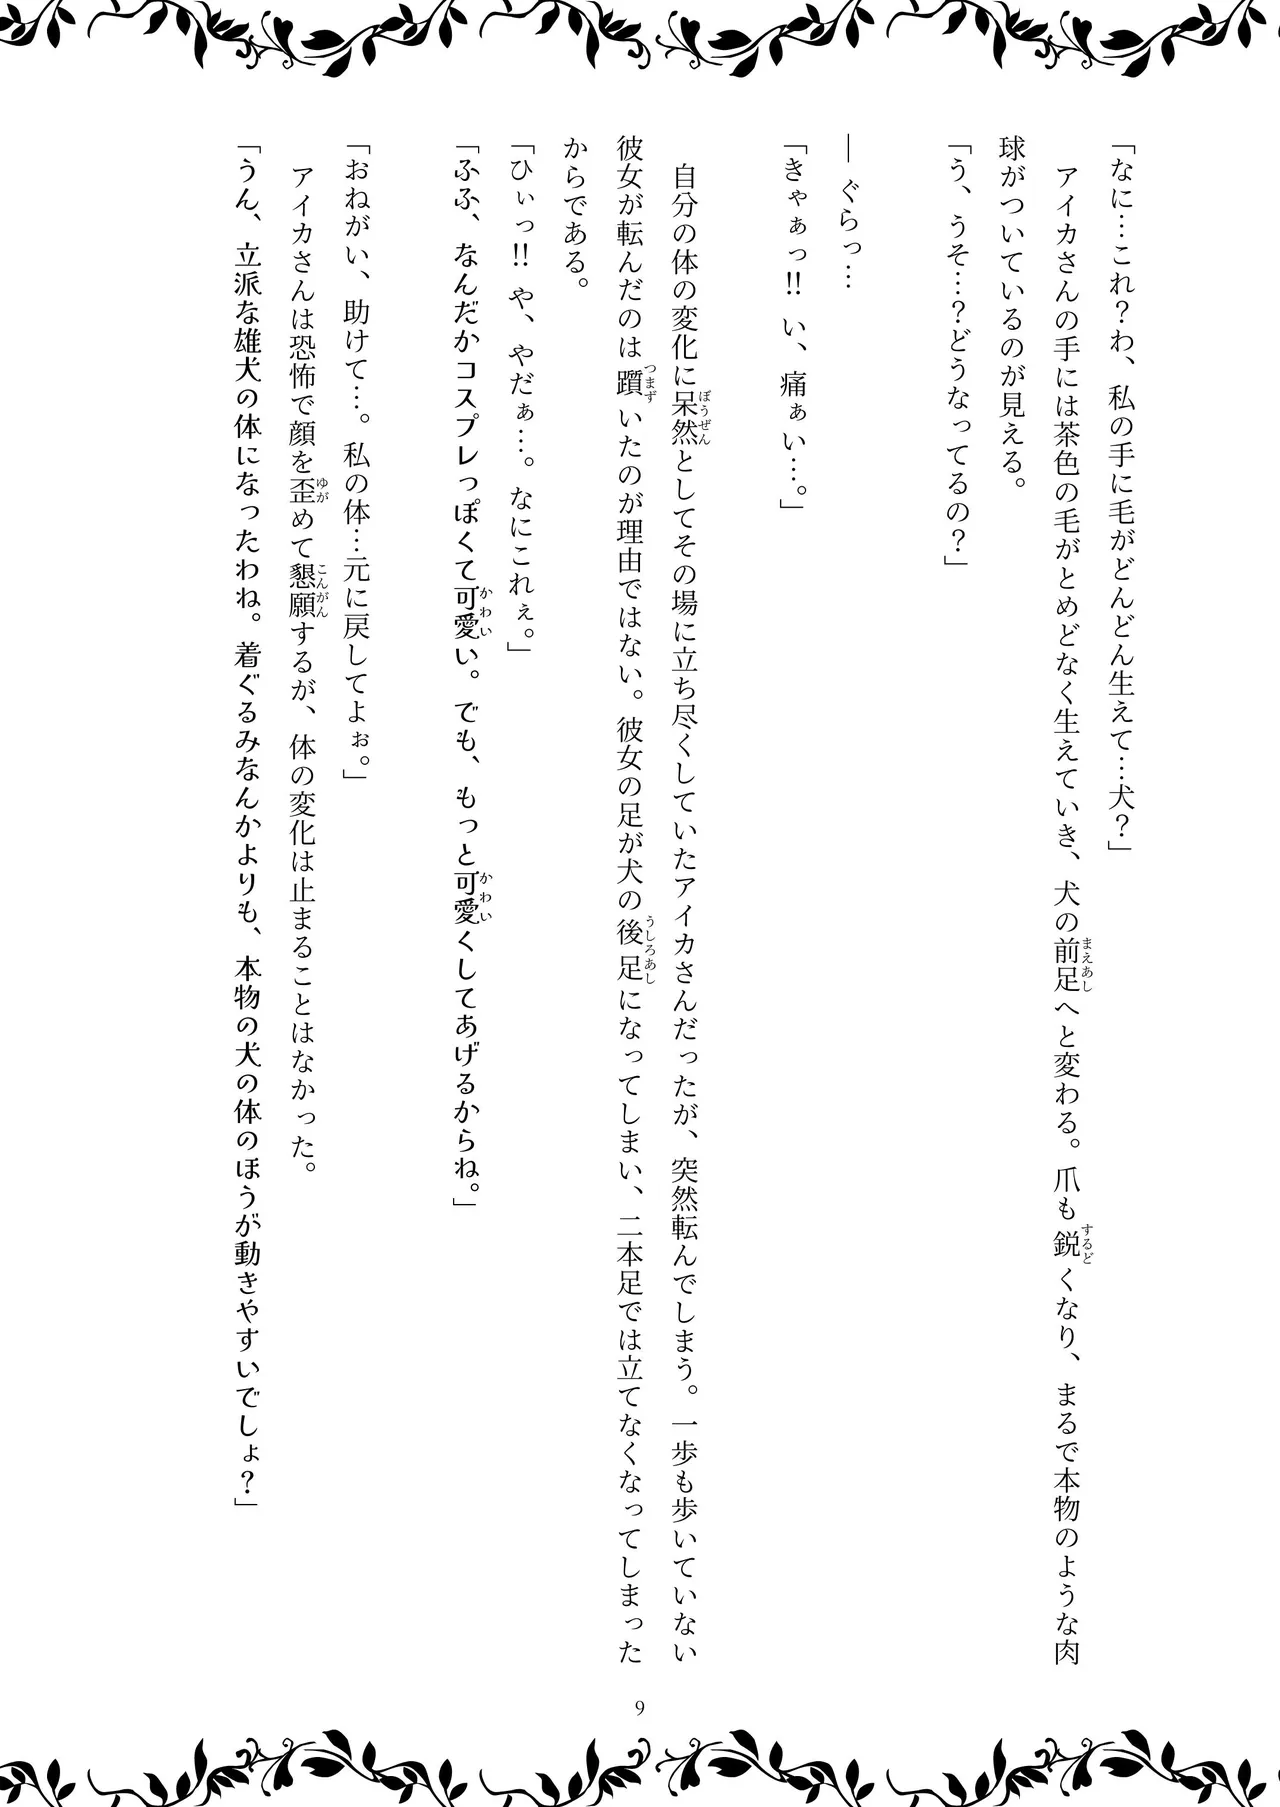 「なに…これ？わ、私の手に毛がどんどん生えて…犬？」
　アイカさんの手には茶色の毛がとめどなく生えていき、犬の前足へと変わる。爪も鋭くなり、まるで本物のような肉
球がついているのが見える。
「う、うそ…？どうなってるの？」
― ぐらっ…
「きゃぁっ!! い、痛ぁい…。」
　自分の体の変化に呆然としてその場に立ち尽くしていたアイカさんだったが、突然転んでしまう。一歩も歩いていない
彼女が転んだのは躓いたのが理由ではない。彼女の足が犬の後足になってしまい、二本足では立てなくなってしまった
からである。
「ひぃっ!! や、やだぁ…。なにこれぇ。」
「ふふ、なんだかコスプレっぽくて可愛い。でも、もっと可愛くしてあげるからね。」
「おねがい、助けて…。私の体…元に戻してよぉ。」
　アイカさんは恐怖で顔を歪めて懇願するが、体の変化は止まることはなかった。
「うん、立派な雄犬の体になったわね。着ぐるみなんかよりも、本物の犬の体のほうが動きやすいでしょ？」
9